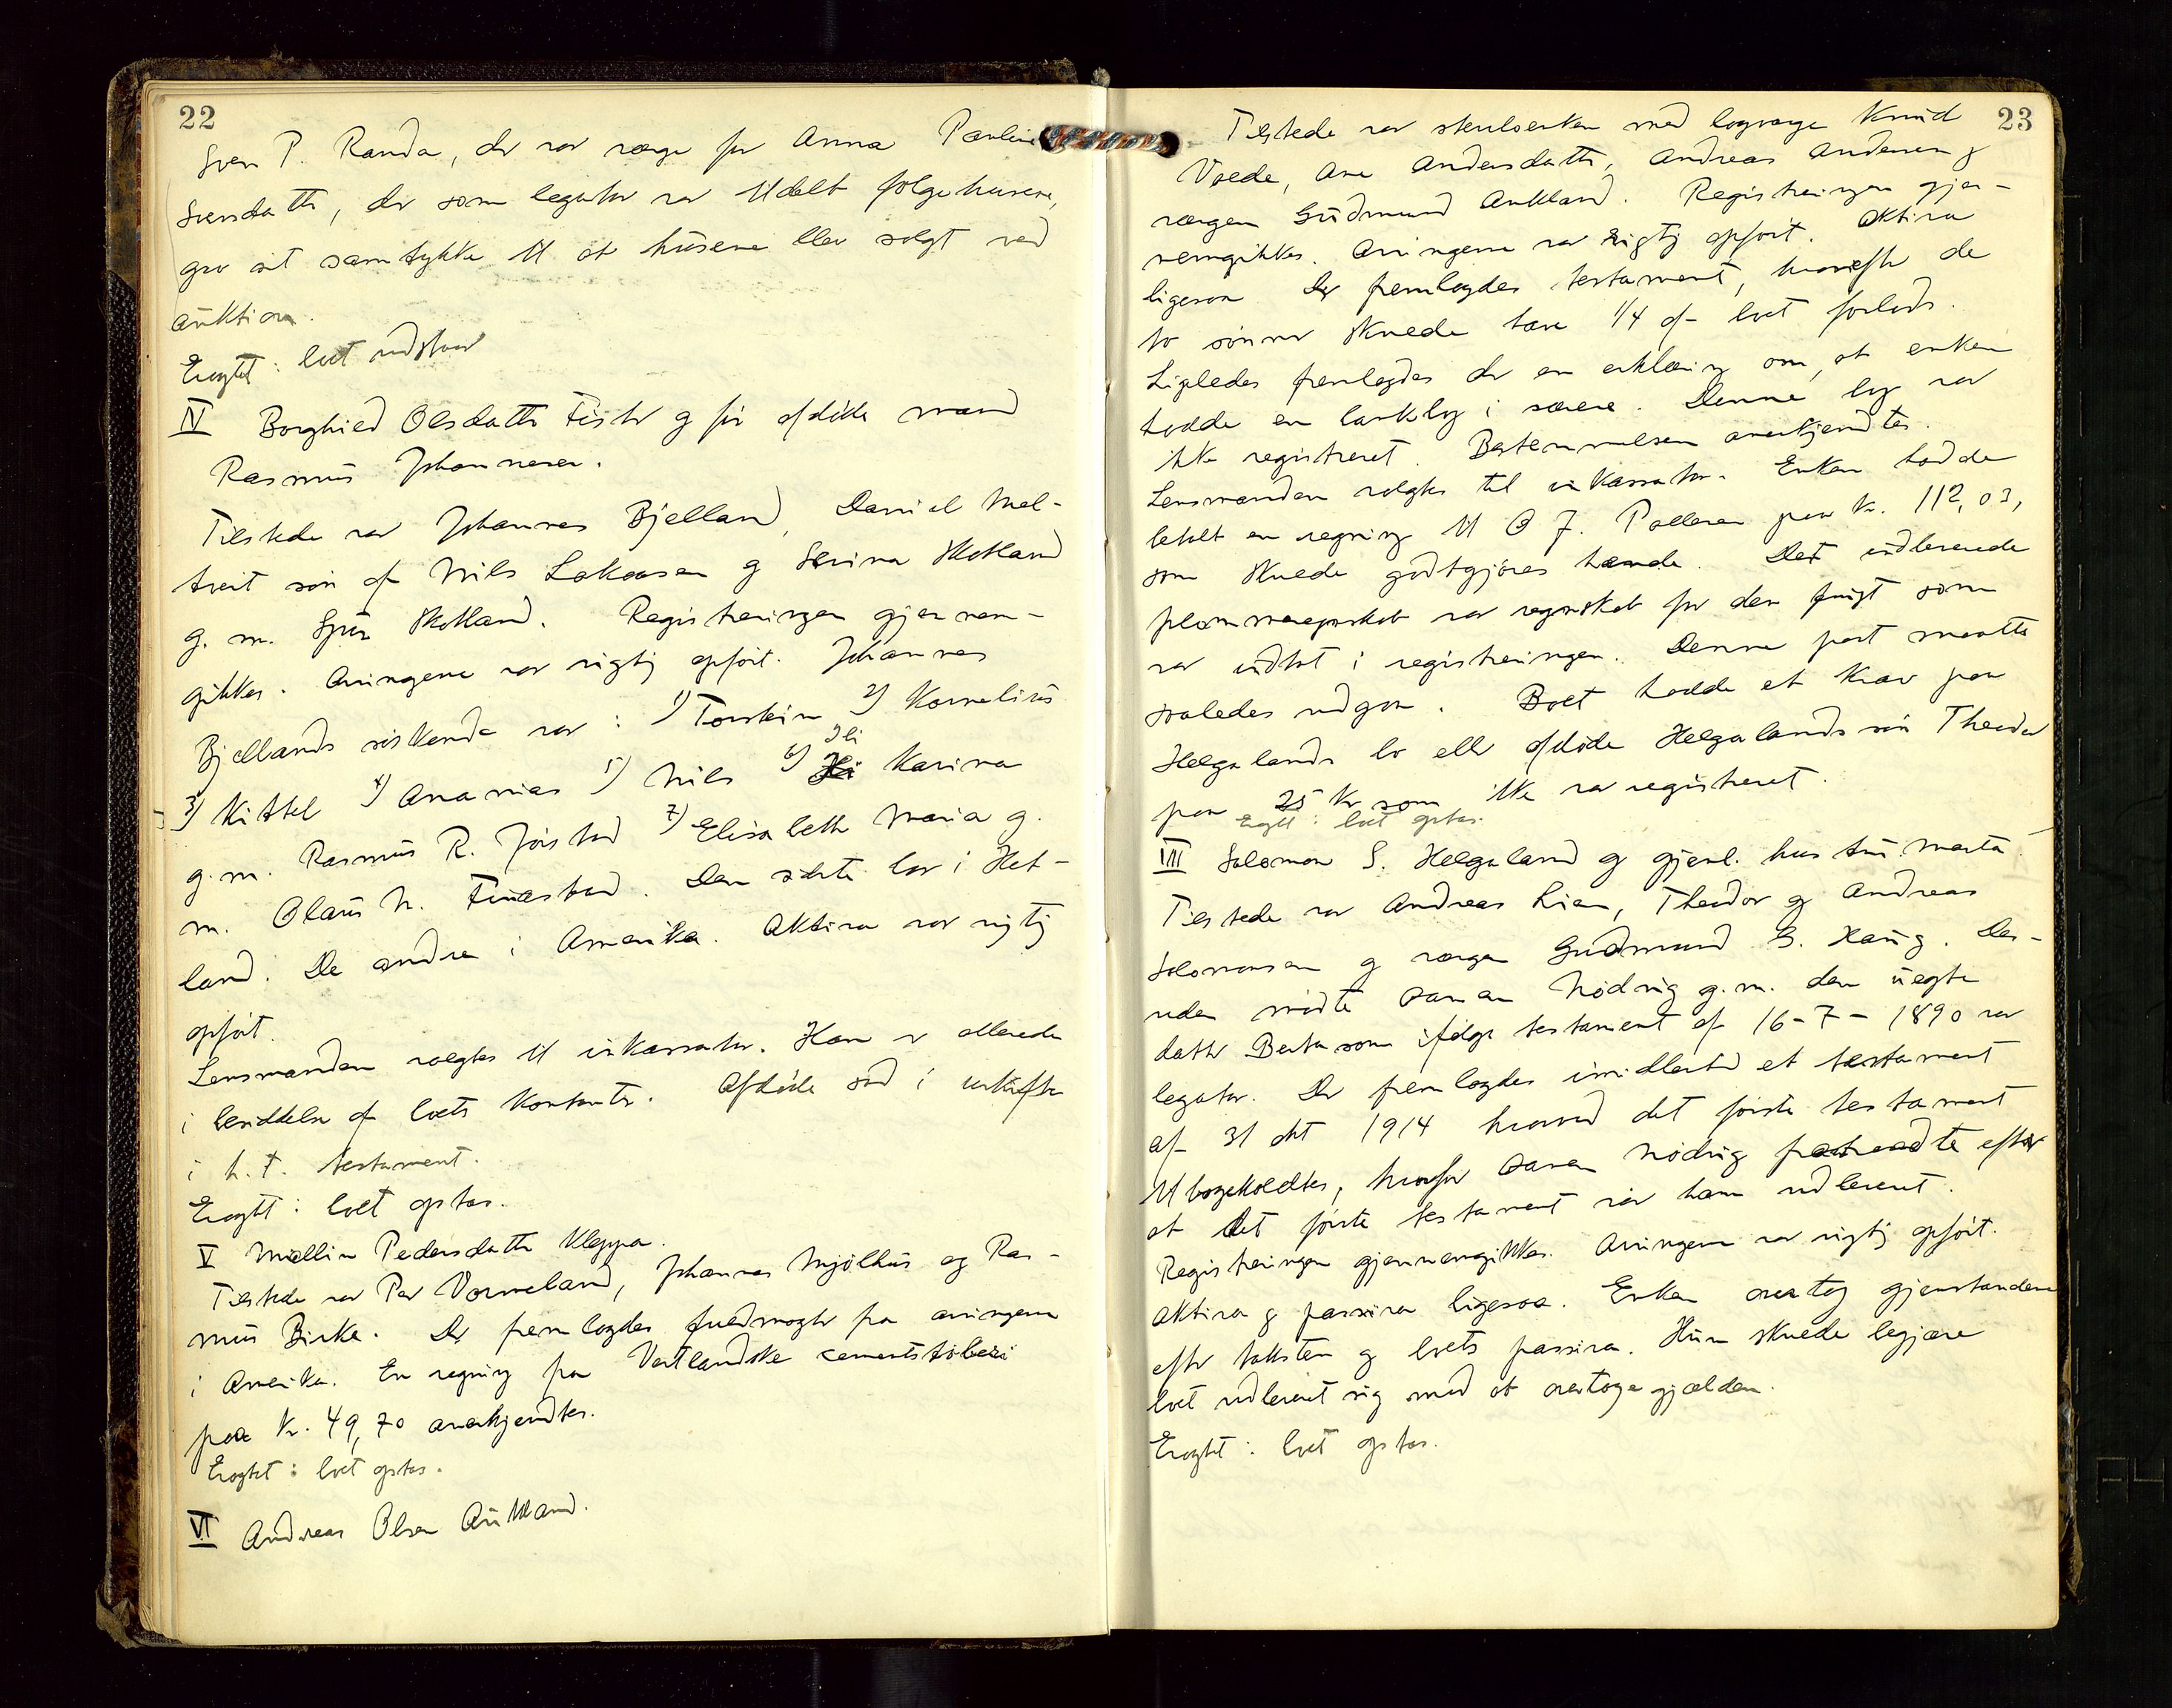 22
Sven P. Randa, der var verge for Anna Pauline
Svensdatter, der som legatar var tildelt følgehusene,
gav sit samtykke til at husene blev solgt ved
auktion.
Eragtet: boet utstaar
IV Borghild Olsdatter Fister og før afdøde mand
Rasmus Johannesen.
Tilstede var Johannes Bjelland, Daniel Mel-
tveit søn af Nils Lakassen og Serina Skotland
g. m. Sjur Skotland. Registreringen gjennem-
gikkes. Arvingene var rigtig opført. Johannes
Bjellands søskende var: 1) Torstein 2) Kornelius
3) Kittel 4) Ananias 5) Nils 6) Ili Karina
g. m. Rasmus R. Jøsstad 7) Elisabeth Maria g.
m. Olaus N. Finnestad. Den sidste bor i Het-
land. De andre i Amerika. Aktiva var rigtig
opført.
Lensmanden valgtes til inkassator. Han er allerede
i besiddelse af boets kontanter. Afdøde sad i uskifte
i h. t. testament.
Eragtet: boet optas.
V Mallin Pedersdatter Kleppa.
Tilstede var Per Vormeland, Johannes Mjølhus og Ras-
mus Birke. Der fremlagdes fuldmagter fra arvingene
i Amerika. En regning fra Vestlandske cementstøberi
paa kr. 49,70 anerkjendtes.
Eragtet: boet optas.
VI Andreas Olsen Aukland.
23
Tilstede var sterboenken med lagverge Knud
Voede, Ane Andersdatter, Andreas Andersen og
vergen Gudmund Aukland. Registreringen gjen-
nemgikkes. Arvingene var rigtig opført. Aktiva
ligesaa Der fremlagdes testament, hvorefter de
to sønner skulde have 1/4 af boet forlods.
Ligeledes fremlagdes der en erklæring om, at enken
hadde en bankbog i værge. Denne bog var
ikke registreret. Bestemmelsen anerkjendtes.
Lensmanden valgtes til inkassator. Enken hadde
betalt en regning til O J. Pallesen paa kr. 112,03,
som skulde godtgjøres hende. Det indleverede
regnskab var regnskab for den som
var indtat i registreringen. Denne post maatte
saaledes udgaa. Boet hadde et krav paa
Helgalands bo eller afdøde Helgalands søn Theodor
paa 25 kr som ikke var registreret.
Eragtet: boet optas.
VII Solomon S. Helgaland og gjenl. hustru Marta
Tilstede var Andreas Lien, Theodor og Andreas
Solomonsen og vergen Gudmund G. Haug. Des-
uden mødte Nødvig g.m. den uegte
datter Berta som ifølge testament af 16-7-1890 var
legatar. Der fremlagdes imidlertid et testament
af 31 okt 1914 hvorved det første testament
tilbagekaldtes, hvorfor Nødvig fratraadte efter
at det første testament var ham udleveret.
Registreringen gjennemgikkes. Arvingene var rigtig opført.
Aktiva og passiva ligesaa. Enken overtog gjenstandene
efter taksten og boets passiva. Hun skulde begjære
boet udleveret sig mod at overtage gjælden.
Eragtet: boet optas.